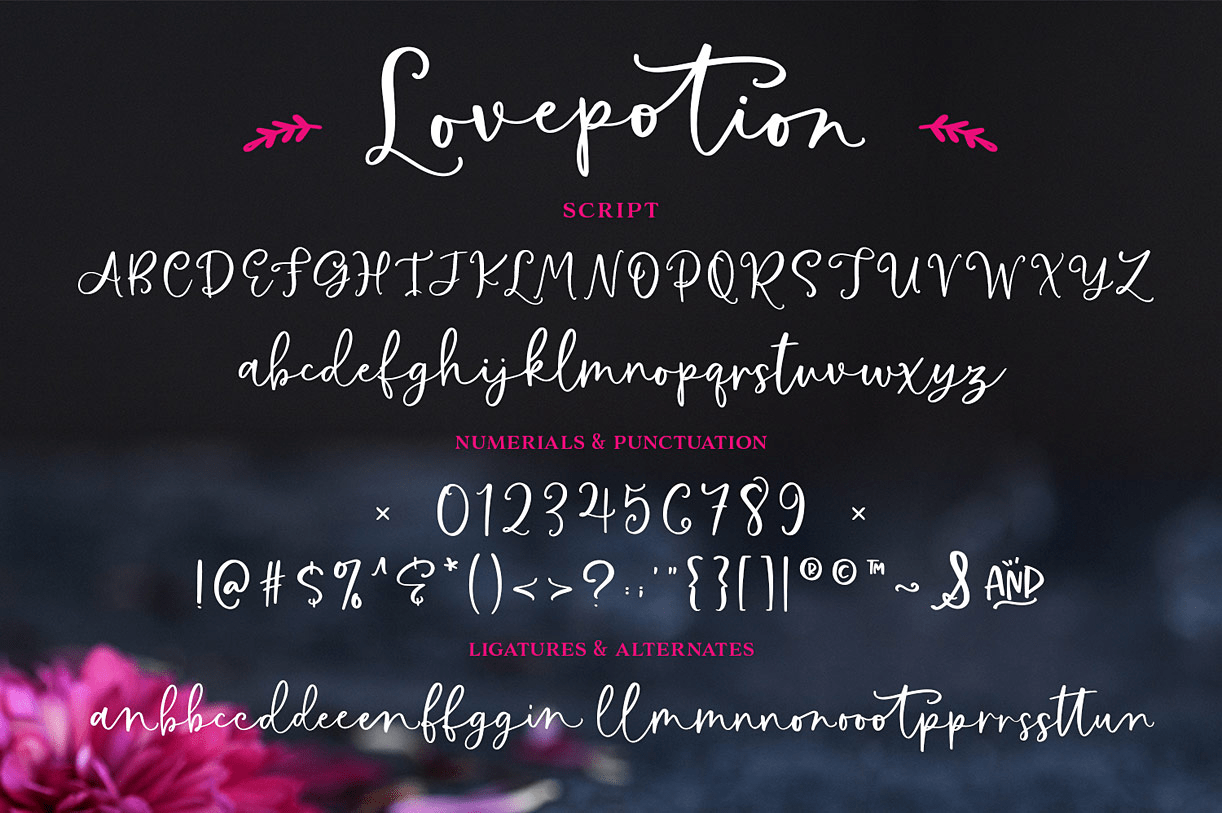 Lovepotion
SCRIPT
ABCDEFGHIJKLMNOPQRSTUVWXYZ
abcdefghijklmnopqrstuvwxyz
NUMERIALS & PUNCTUATION
× 0123456789 ×
!@#$%^&*()<>?:;'"{}[]|®©™~& AND
LIGATURES & ALTERNATES
anbbccddeeenffggin llmmnnonoootpprrrssttun